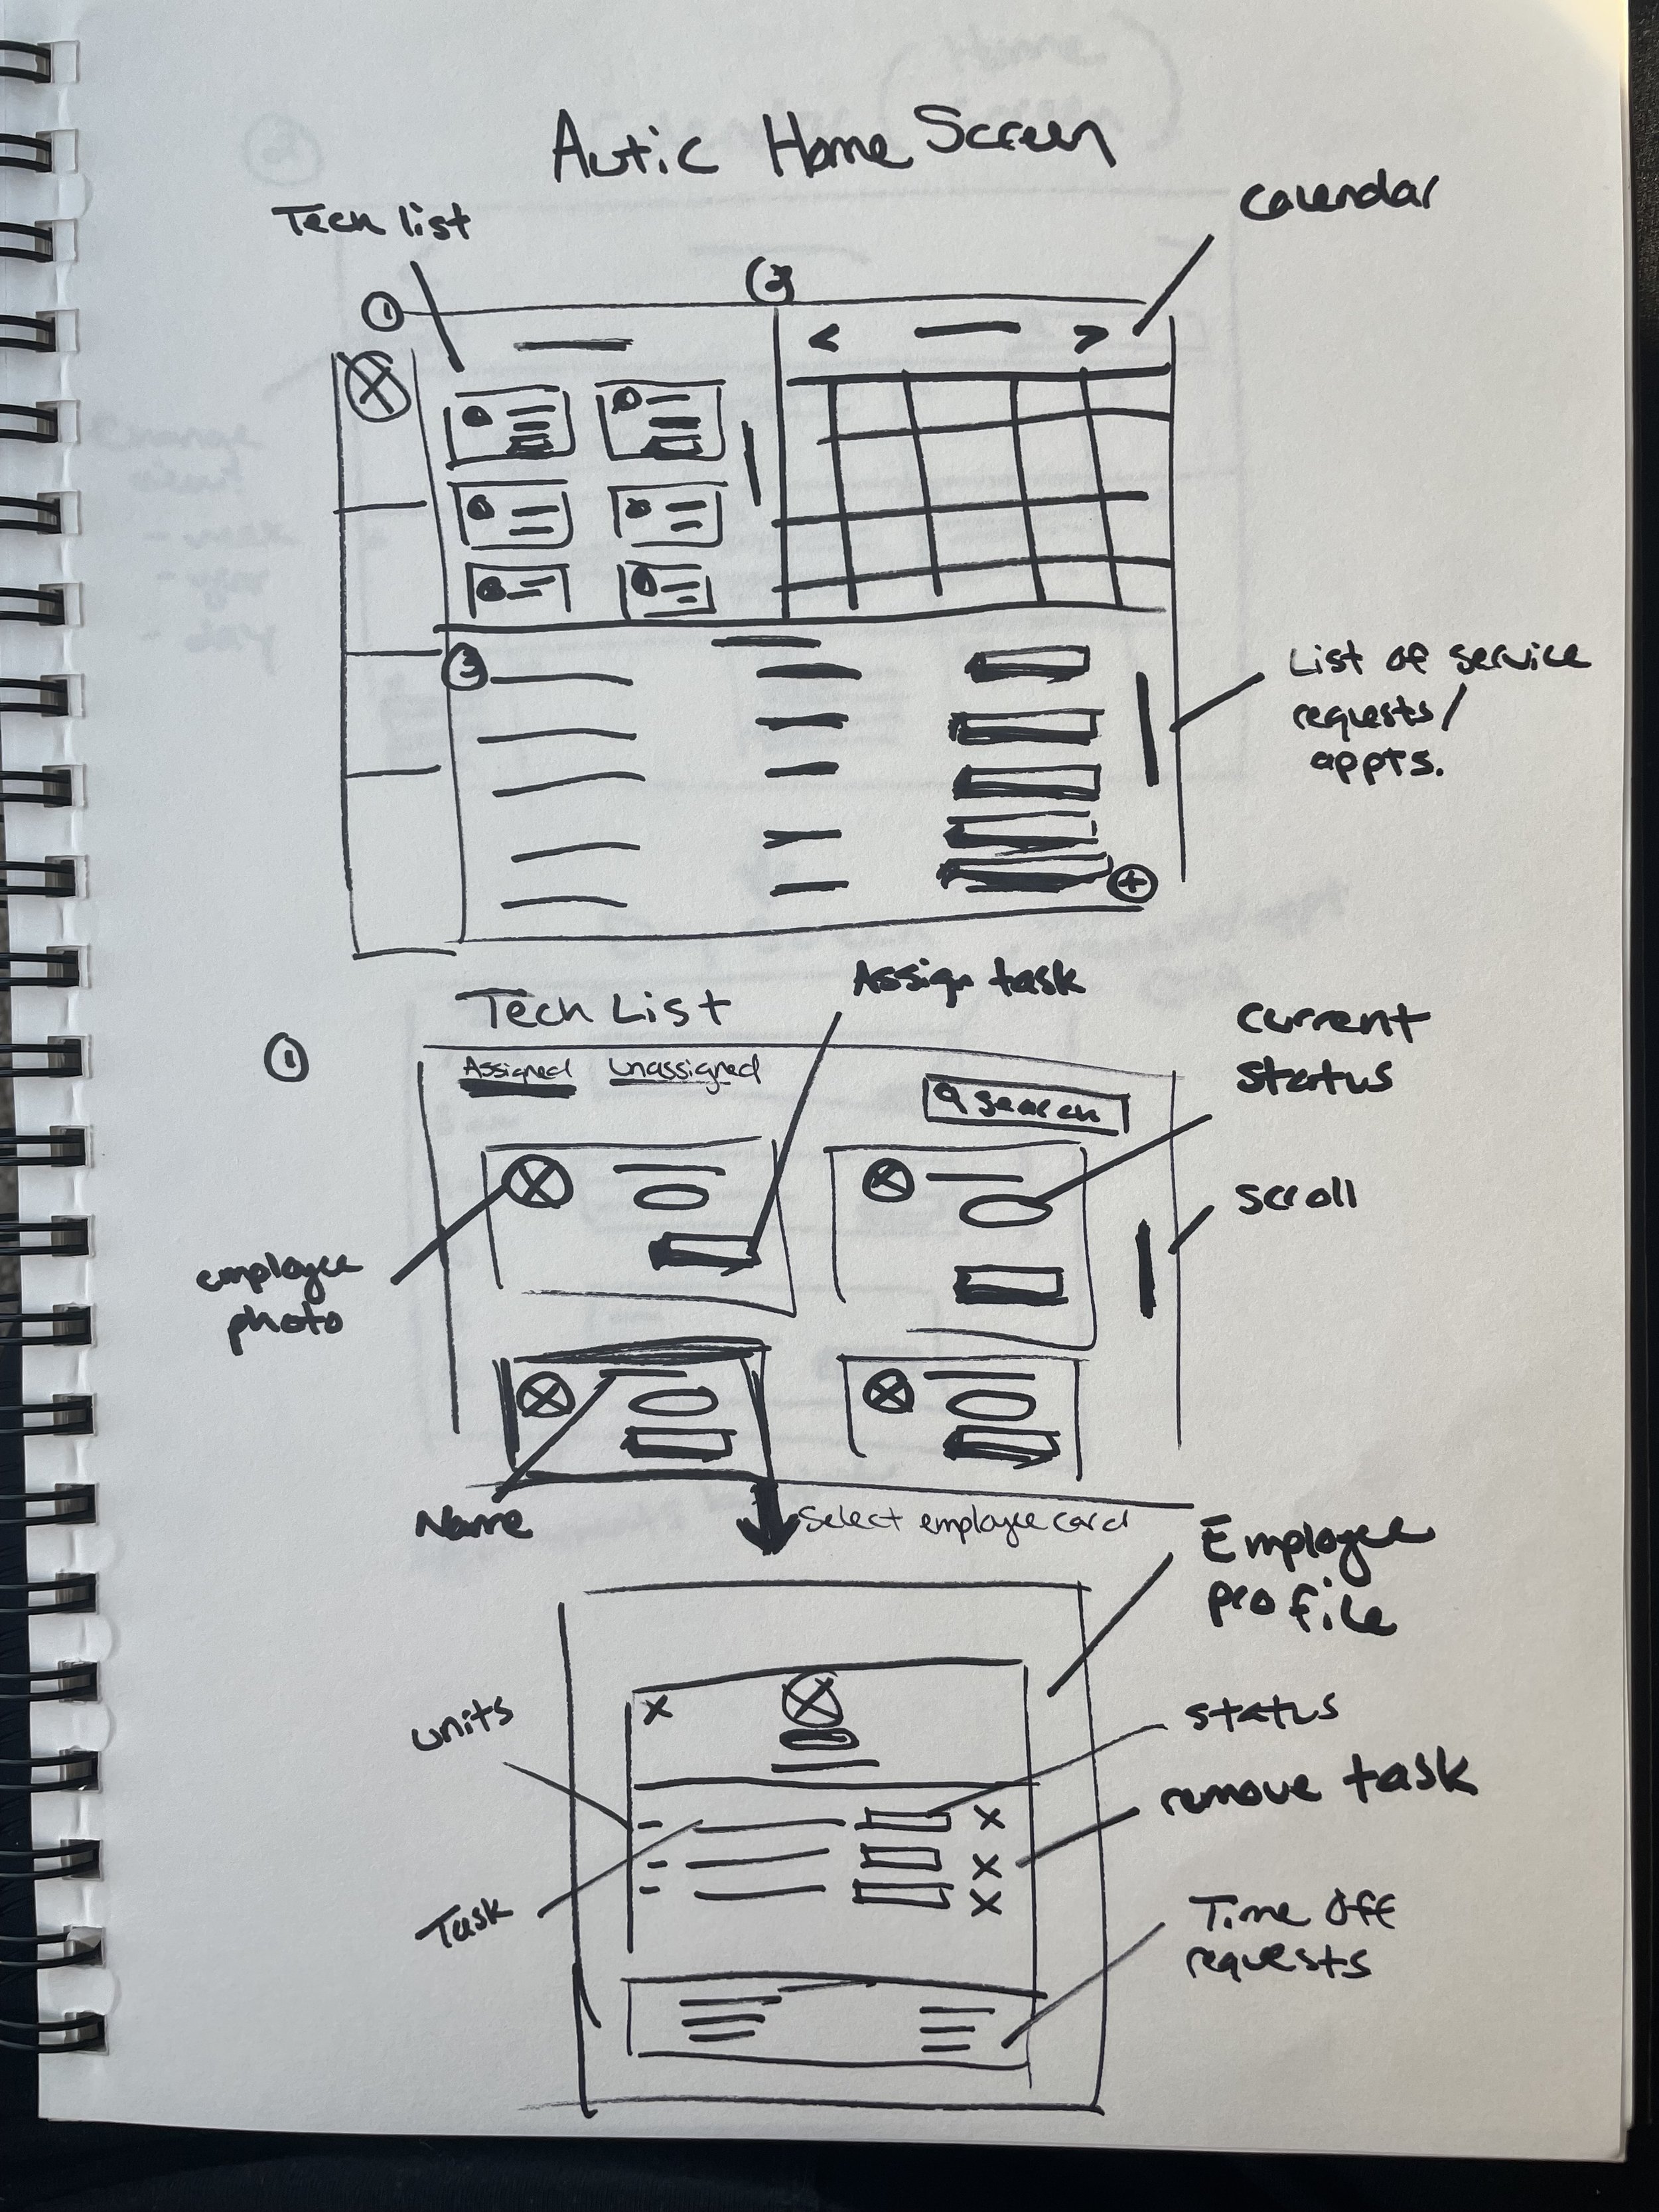 Autic Home Screen
Tech list
Calendar
①
②
< >
③
List of service
requests/
appts.
+
Assign task
Tech List
Current
status
①
Assigned Unassigned
Search
scroll
employee
photo
Name
Select employee card
Employee
profile
units
x
status
remove task
x
x
x
Task
Time Off
requests